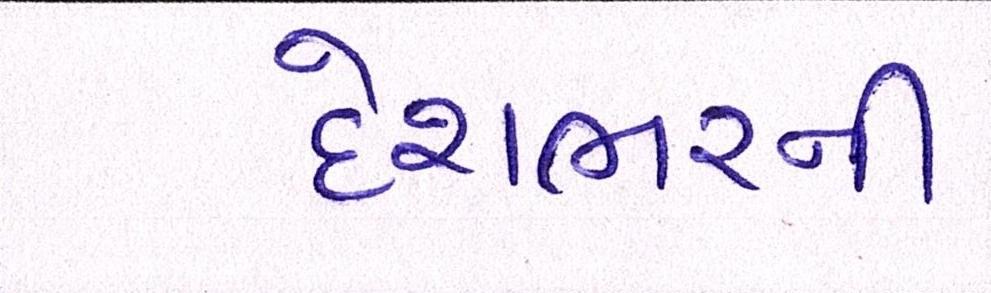 દેશભરની